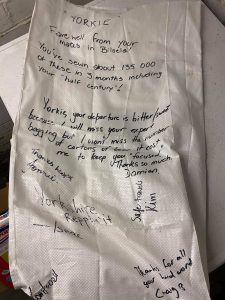 YORKIE
Farewell from your
mates in Biloela!
You've sewn about 135 000
of these in 3 months including
your "half century"!
Yorkie, your departure is bitter/sweet
because I will miss your expert
bagging but I won't miss the number
of cartons of it cost
me to keep you "focused"
Thanks so much
Damian
Thanks
Safe travels
Kim
Yorkshire
Reppin' it
Isaac
Thanks for all
your hard work
Craig B